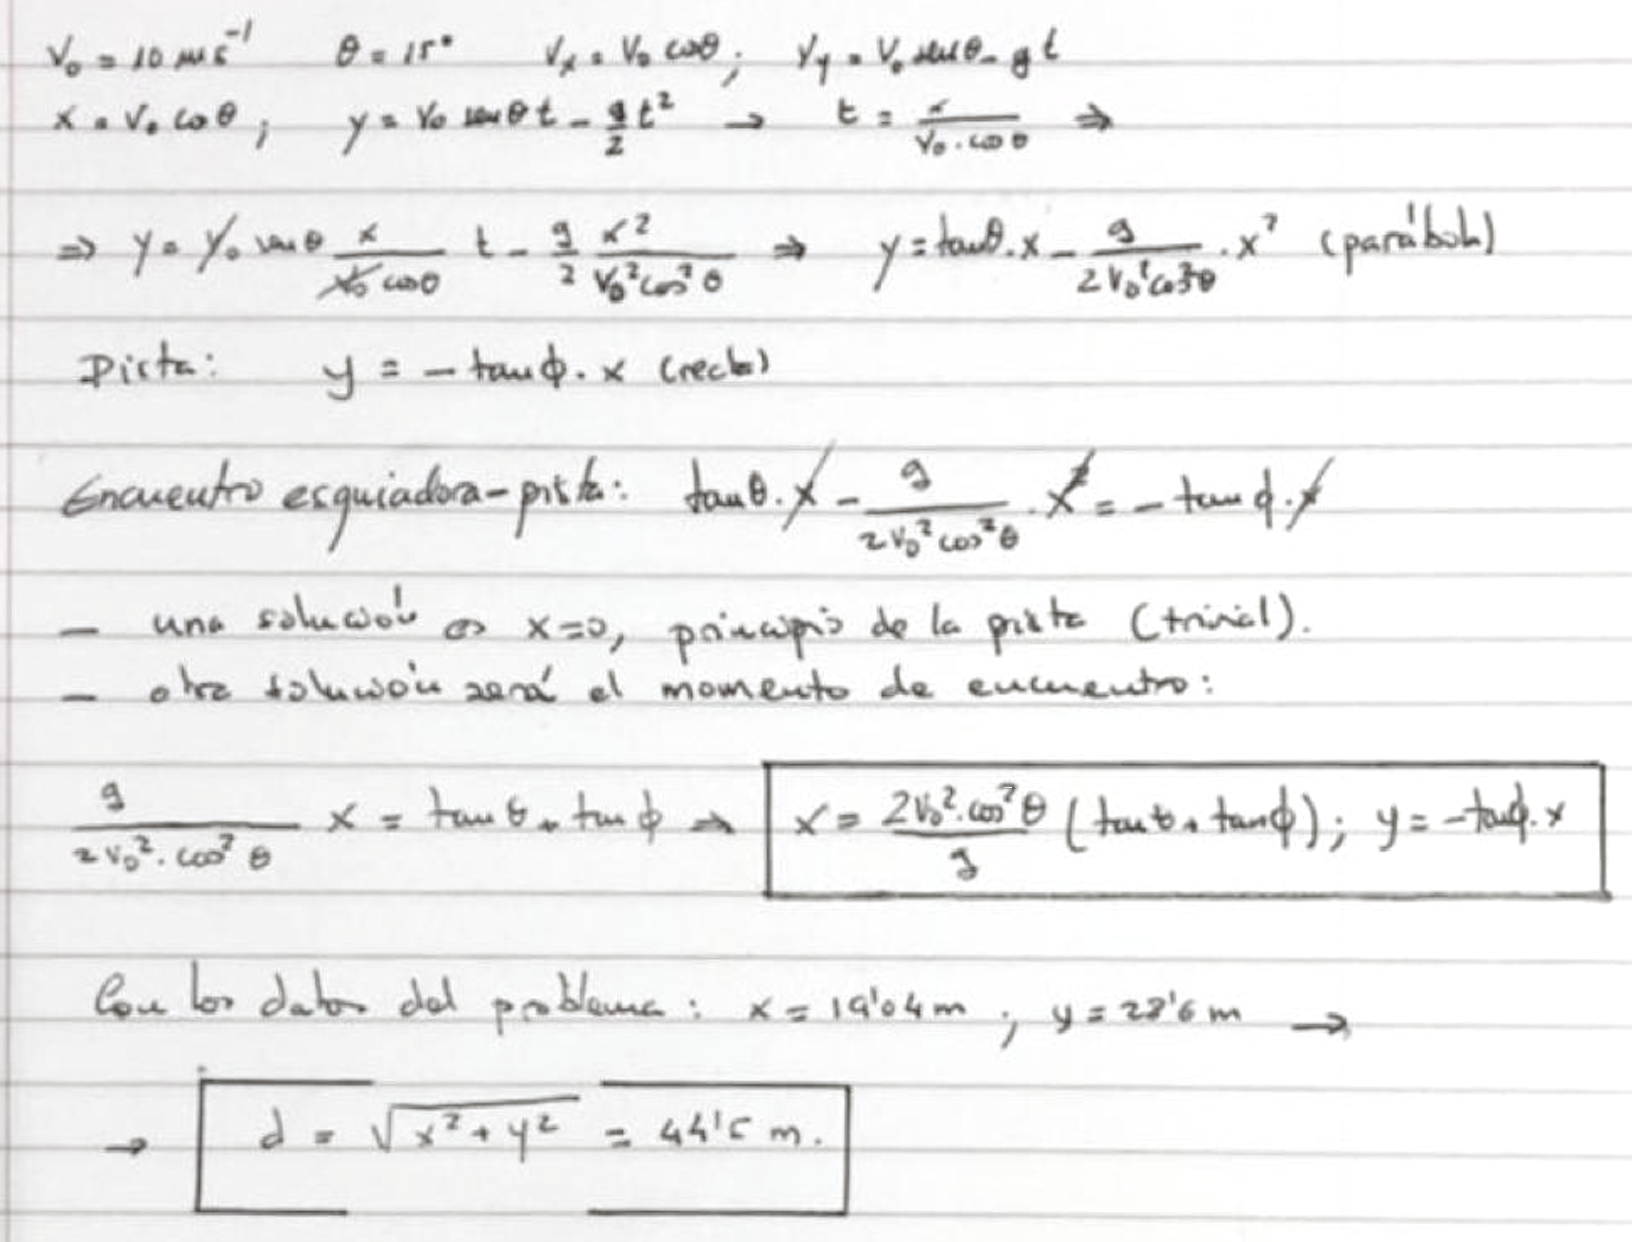 V₀ = 10 m s⁻¹ θ = 15° Vₓ = V₀ cosθ; V_y = V₀ senθ - g t
x = V₀ cosθ; y = V₀ senθ t - g/2 t² → t = x/(V₀·cosθ) ⇒
⇒ y = V₀ senθ x/(V₀ cosθ) t - g/2 x²/(V₀² cos²θ) ⇒ y = tanθ·x - g/(2V₀² cos²θ)·x² (parábola)
Pista: y = - tanϕ·x (recta)
Encuentro esquiadora-pista: tanθ·x - g/(2V₀² cos²θ)·x² = - tanϕ·x
- una solución es x=0, principio de la pista (trivial).
- otra solución será el momento de encuentro:
g/(2V₀²·cos²θ) x = tanθ + tanϕ → x = 2V₀²·cos²θ/g (tanθ + tanϕ); y = -tanϕ·x
Con los datos del problema: x = 19'04 m; y = 28'6 m →
→ d = √(x² + y²) = 44'5 m.